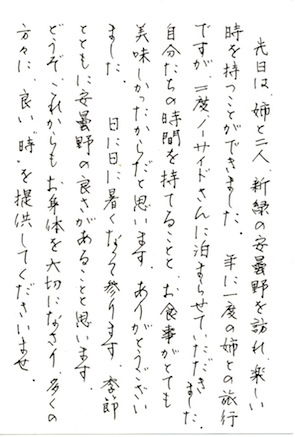 先日は、姉と二人、新緑の安曇野を訪れ、楽しい
時を持つことができました。年に一度の姉との旅行
ですが、二度ノーサイドさんに泊まらせていただきました。
自分たちの時間を持てることと、お食事がとても
美味しかったからだと思います。ありがとうござい
ました。 日に日に暑くなって参ります。季節
とともに安曇野の良さがあることと思います。
どうぞ、これからもお身体を大切になさり、多くの
方々に、良い“時”を提供してくださいませ。